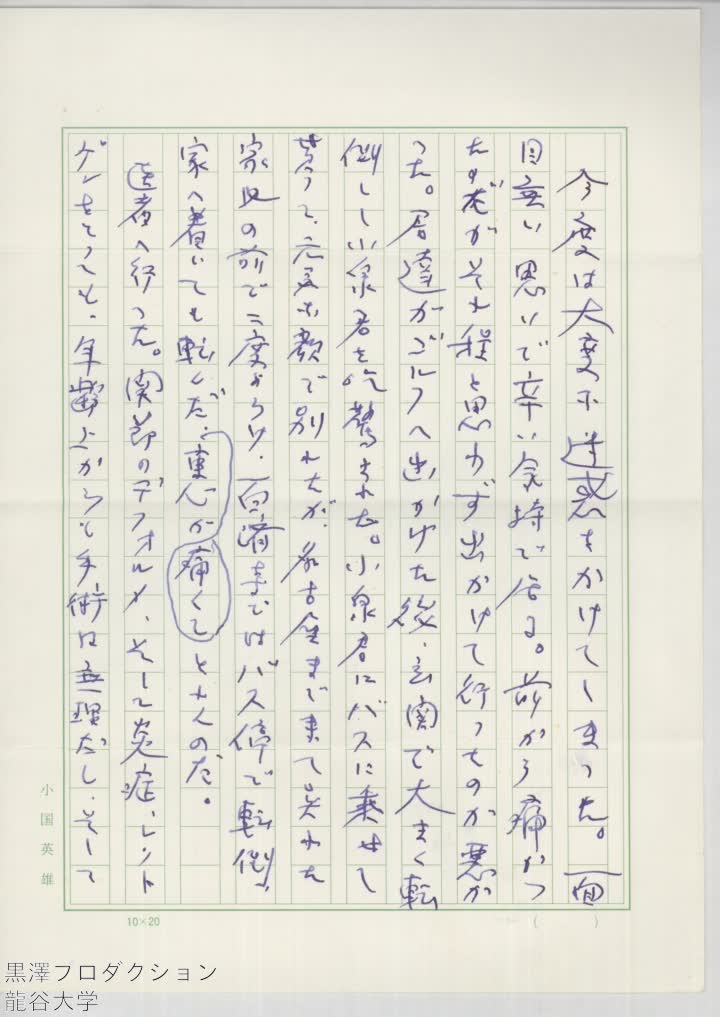 今度は大変な迷惑をかけてしまった。面
目無い思いで辛い気持で居る。前から痛かっ
たのだがそれ程と思わず出かけて行ったのが悪か
った。君達がゴルフへ出かけた後、玄関で大きく転
倒しし小泉君を吃驚させた。小泉君にバスに乗せて
貰って、元気な顔で別れたが、名古屋まで来て呉れた
の前で二度よろけ、百済寺ではバス停で転倒、
家へ着いても転んだ。東心が痛くてと人のだ。
医者へ行った。関節のデフォルメ、そして炎症、レント
ゲンをとっても、年齢上からも手術は無理だし、そして
小国英雄
10×20
( )
黒澤プロダクション
龍谷大学